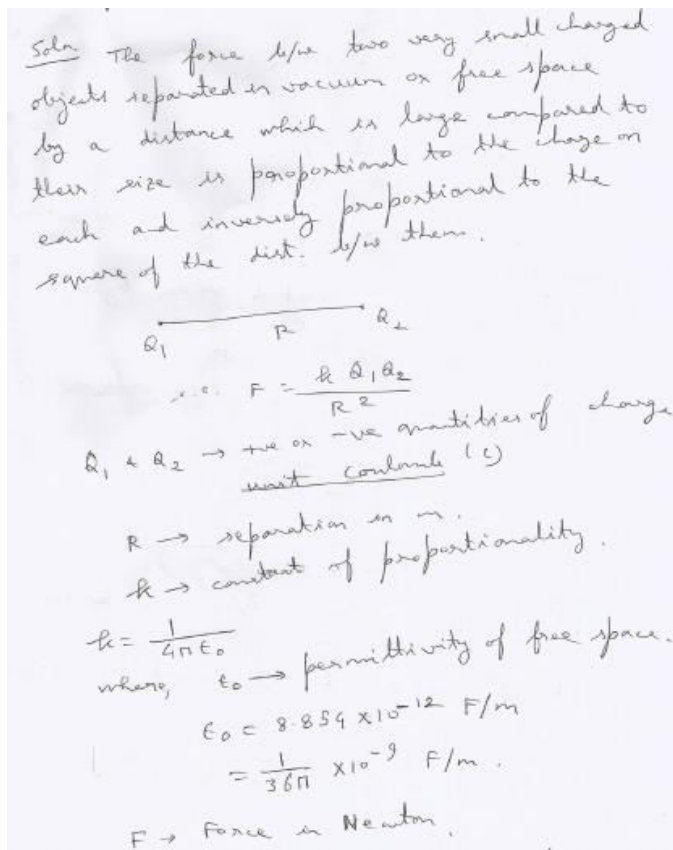 Soln The force b/w two very small charged
objects separated in vacuum or free space
by a distance which is large compared to
their size is proportional to the charge on
each and inversely proportional to the
square of the dist. b/w them.
Q₁ R Q₂
i.e. F = k Q₁Q₂ / R²
Q₁ & Q₂ → +ve or -ve quantities of charge
unit coulomb (C)
R → separation in m.
k → constant of proportionality.
k = 1 / 4πε₀
where, ε₀ → permittivity of free space.
ε₀ = 8.854 × 10⁻¹² F/m
= 1/36π × 10⁻⁹ F/m.
F → Force in Newton.